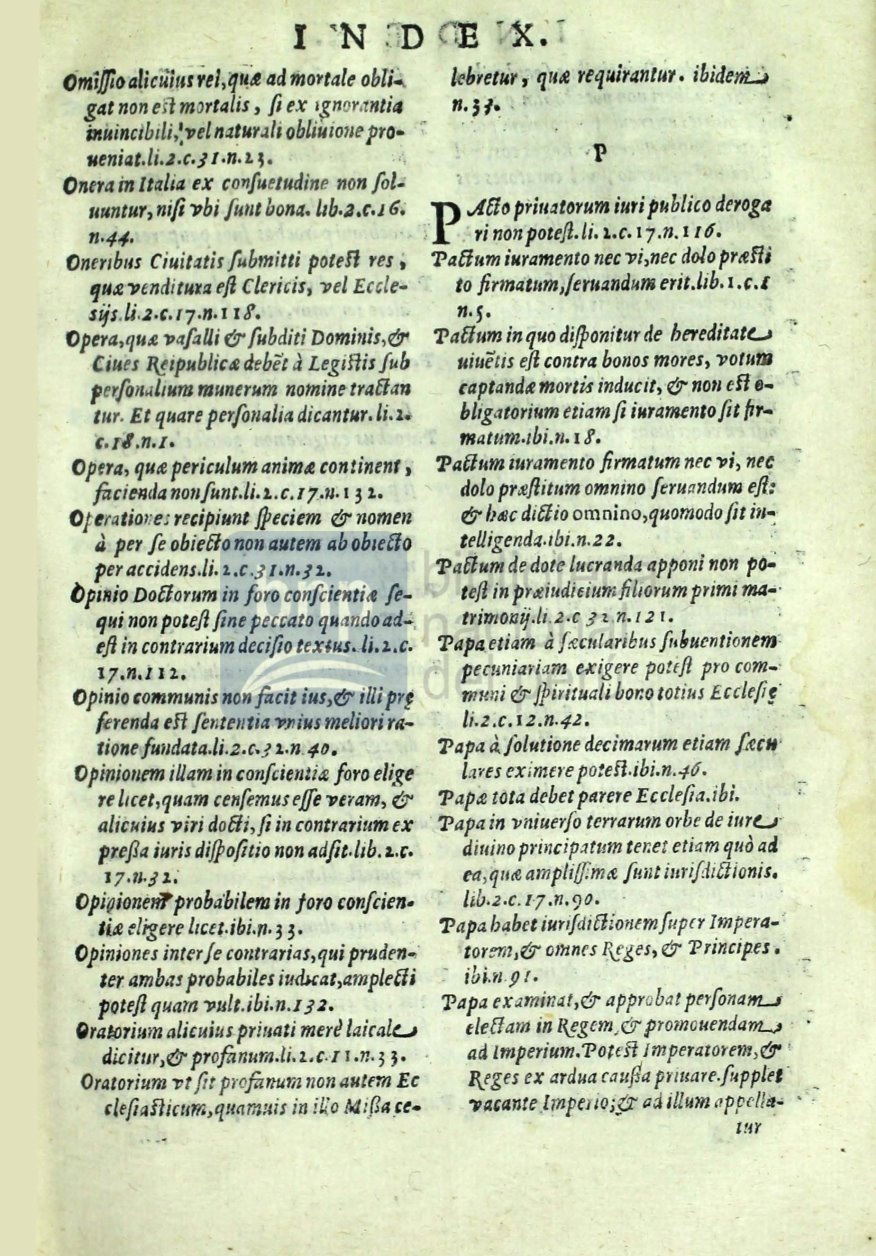 INDEX.
Omissio alicuius rei, quæ ad mortale obli-
gat non est mortalis, si ex ignorantia
inuincibili, vel naturali obliuione pro-
ueniat. li. 2. c. 31. n. 23.
Onera in Italia ex consuetudine non sol-
uuntur, nisi vbi sunt bona. lib. 2. c. 16.
n. 44.
Oneribus Ciuitatis submitti potest res,
quæ venditura est Clericis, vel Eccle-
sijs. li. 2. c. 17. n. 118.
Opera, quæ vasalli & subditi Dominis, &
Ciues Reipublicæ debēt à Legistis sub
personalium munerum nomine tractan
tur. Et quare personalia dicantur. li. 2.
c. 18. n. 1.
Opera, quæ periculum animæ continent,
facienda non sunt. li. 2. c. 17. n. 132.
Operationes recipiunt speciem & nomen
à per se obiecto non autem ab obiecto
per accidens. li. 2. c. 31. n. 32.
Opinio Doctorum in foro conscientiæ se-
qui non potest sine peccato quando ad-
est in contrarium decisio textus. li. 2. c.
17. n. 112.
Opinio communis non facit ius, & illi prę
ferenda est sententia vnius meliori ra-
tione fundata. li. 2. c. 32. n 40.
Opinionem illam in conscientiæ foro elige
re licet, quam censemus esse veram, &
alicuius viri docti, si in contrarium ex
pressa iuris dispositio non adsit. lib. 2. c.
17. n. 32.
Opinionem probabilem in foro conscien-
tiæ eligere licet. ibi. n. 33.
Opiniones inter se contrarias, qui pruden-
ter ambas probabiles iudicat, amplecti
potest quam vult. ibi. n. 132.
Oratorium alicuius priuati merè laicale
dicitur, & profanum. li. 2. c. 11. n. 33.
Oratorium vt sit profanum non autem Ec
clesiasticum, quamuis in illo Missa ce-
lebretur, quæ requirantur. ibidem
n. 34.
P
PActo priuatorum iuri publico deroga
ri non potest. li. 2. c. 17. n. 116.
Pactum iuramento nec vi, nec dolo præsti
to firmatum, seruandum erit. lib. 1. c. 1
n. 5.
Pactum in quo disponitur de hereditate
uiuētis est contra bonos mores, votum
captandæ mortis inducit, & non est o-
bligatorium etiam si iuramento sit fir-
matum. ibi. n. 18.
Pactum iuramento firmatum nec vi, nec
dolo præstitum omnino seruandum est:
& hæc dictio omnino, quomodo sit in-
telligenda. ibi. n. 22.
Pactum de dote lucranda apponi non po-
test in præiudicium filiorum primi ma-
trimonij. li. 2. c 32 n. 121.
Papa etiam à sæcularibus subuentionem
pecuniariam exigere potest pro com-
muni & spirituali bono totius Ecclesię
li. 2. c. 12. n. 42.
Papa à solutione decimarum etiam sæcu
lares eximere potest. ibi. n. 46.
Papæ tota debet parere Ecclesia. ibi.
Papa in vniuerso terrarum orbe de iure
diuino principatum tenet etiam quò ad
ea, quæ amplissimæ sunt iurisdictionis.
lib. 2. c. 17. n. 90.
Papa habet iurisdictionem super Impera-
torem, & omnes Reges, & Principes.
ibi. n 91.
Papa examinat, & approbat personam
electam in Regem, & promouendam
ad Imperium. Potest Imperatorem, &
Reges ex ardua caussa priuare. supplet
vacante Imperio; & ad illum appella-
tur